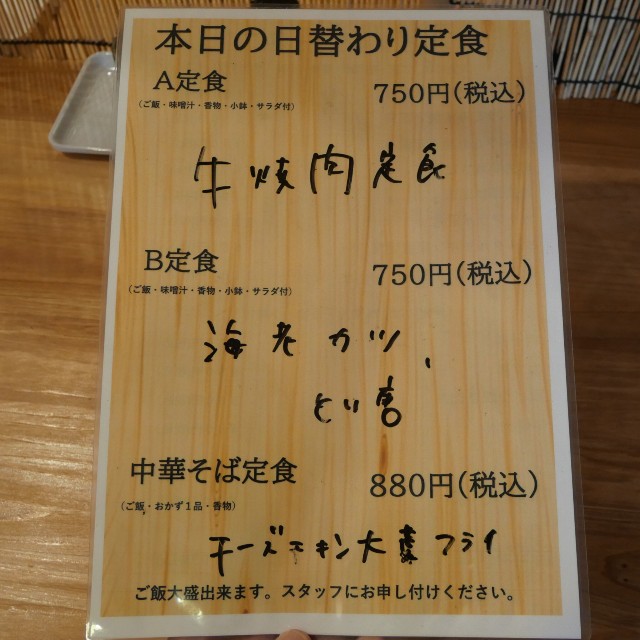 本日の日替わり定食
A定食 750円(税込)
(ご飯・味噌汁・香物・小鉢・サラダ付)
牛焼肉定食
B定食 750円(税込)
(ご飯・味噌汁・香物・小鉢・サラダ付)
海老カツ、
とり
中華そば定食 880円(税込)
(ご飯・おかず1品・香物)
チーズチキン大葉フライ
ご飯大盛出来ます。スタッフにお申し付けください。